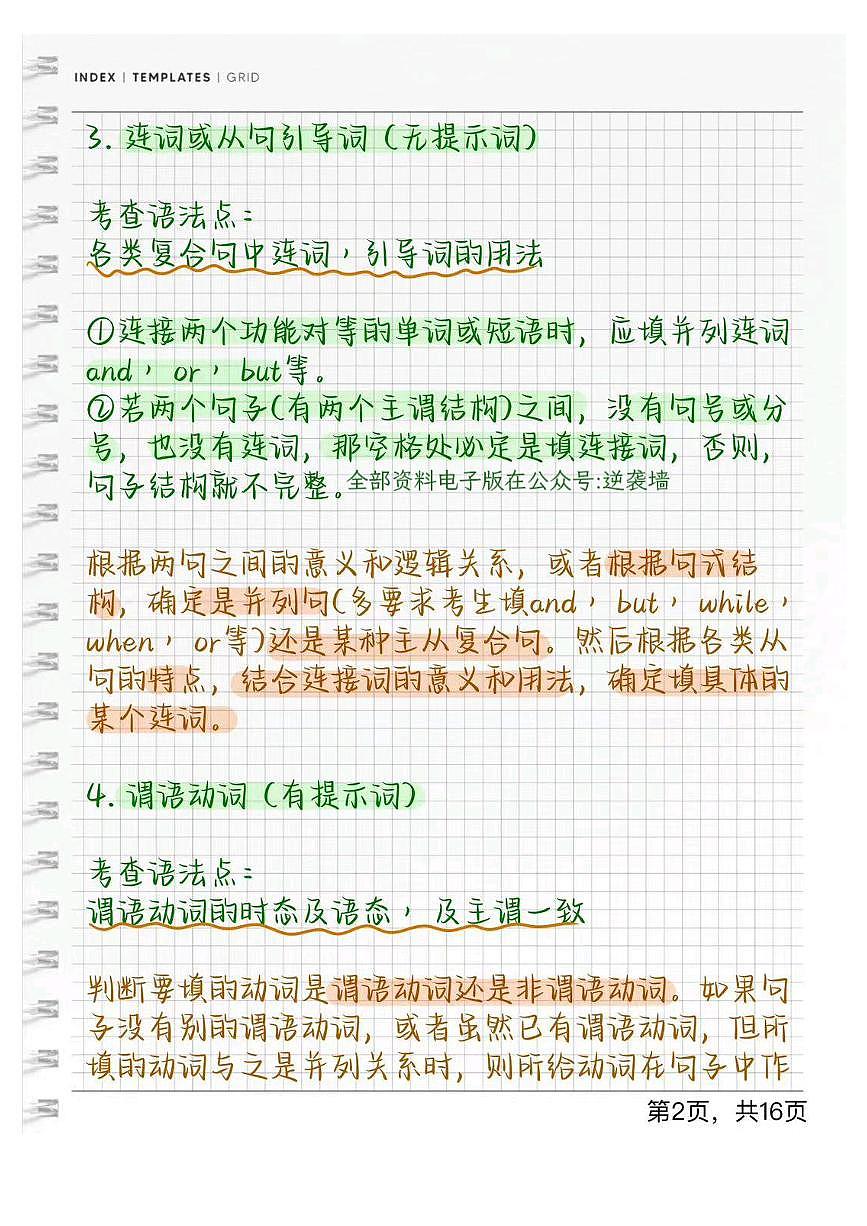 INDEX | TEMPLATES | GRID
3. 连词或从句引导词（无提示词）
考查语法点：
各类复合句中连词，引导词的用法
①连接两个功能对等的单词或短语时，应填并列连词
and，or，but等。
②若两个句子(有两个主谓结构)之间，没有句号或分
号，也没有连词，那空格处必定是填连接词，否则，
句子结构就不完整。全部资料电子版在公众号:逆袭墙
根据两句之间的意义和逻辑关系，或者根据句式结
构，确定是并列句(多要求考生填and，but，while，
when，or等)还是某种主从复合句。然后根据各类从
句的特点，结合连接词的意义和用法，确定填具体的
某个连词。
4. 谓语动词（有提示词）
考查语法点：
谓语动词的时态及语态，及主谓一致
判断要填的动词是谓语动词还是非谓语动词。如果句
子没有别的谓语动词，或者虽然已有谓语动词，但所
填的动词与之是并列关系时，则所给动词在句子中作
第2页，共16页